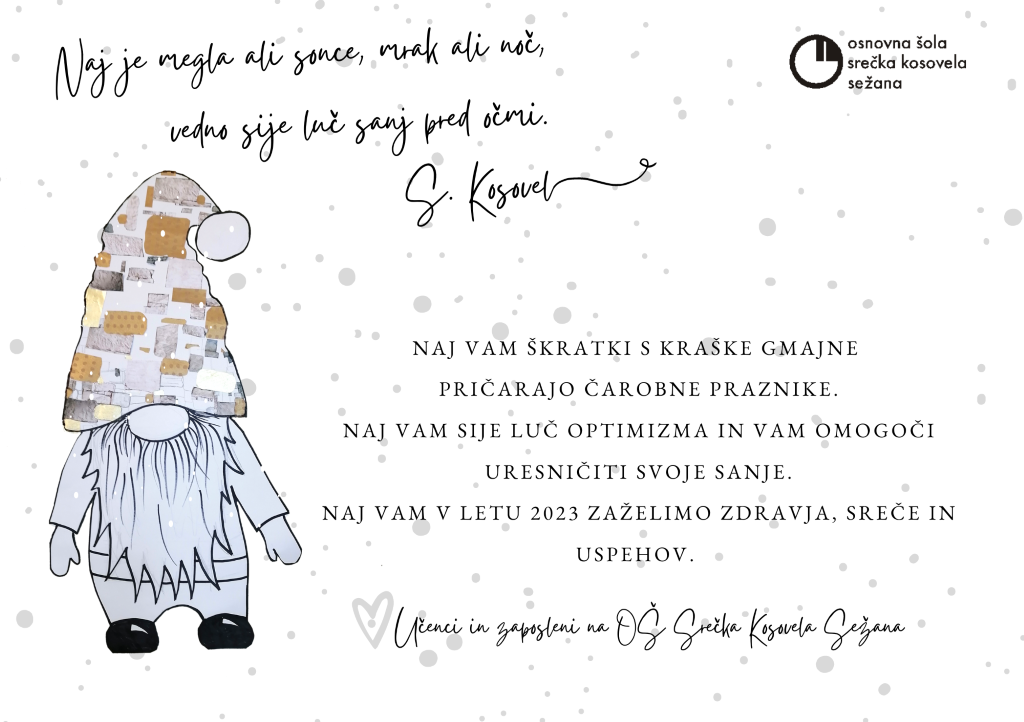 Naj je megla ali sonce, mrak ali noč,
vedno sije luč sanj pred očmi.
S. Kosovel
osnovna šola
srečka kosovela
sežana
NAJ VAM ŠKRATKI S KRAŠKE GMAJNE
PRIČARAJO ČAROBNE PRAZNIKE.
NAJ VAM SIJE LUČ OPTIMIZMA IN VAM OMOGOČI
URESNIČITI SVOJE SANJE.
NAJ VAM V LETU 2023 ZAŽELIMO ZDRAVJA, SREČE IN
USPEHOV.
Učenci in zaposleni na OŠ Srečka Kosovela Sežana